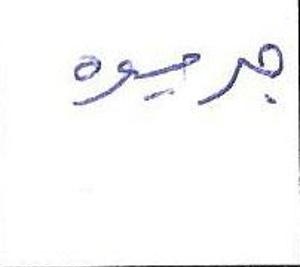 جرميوه